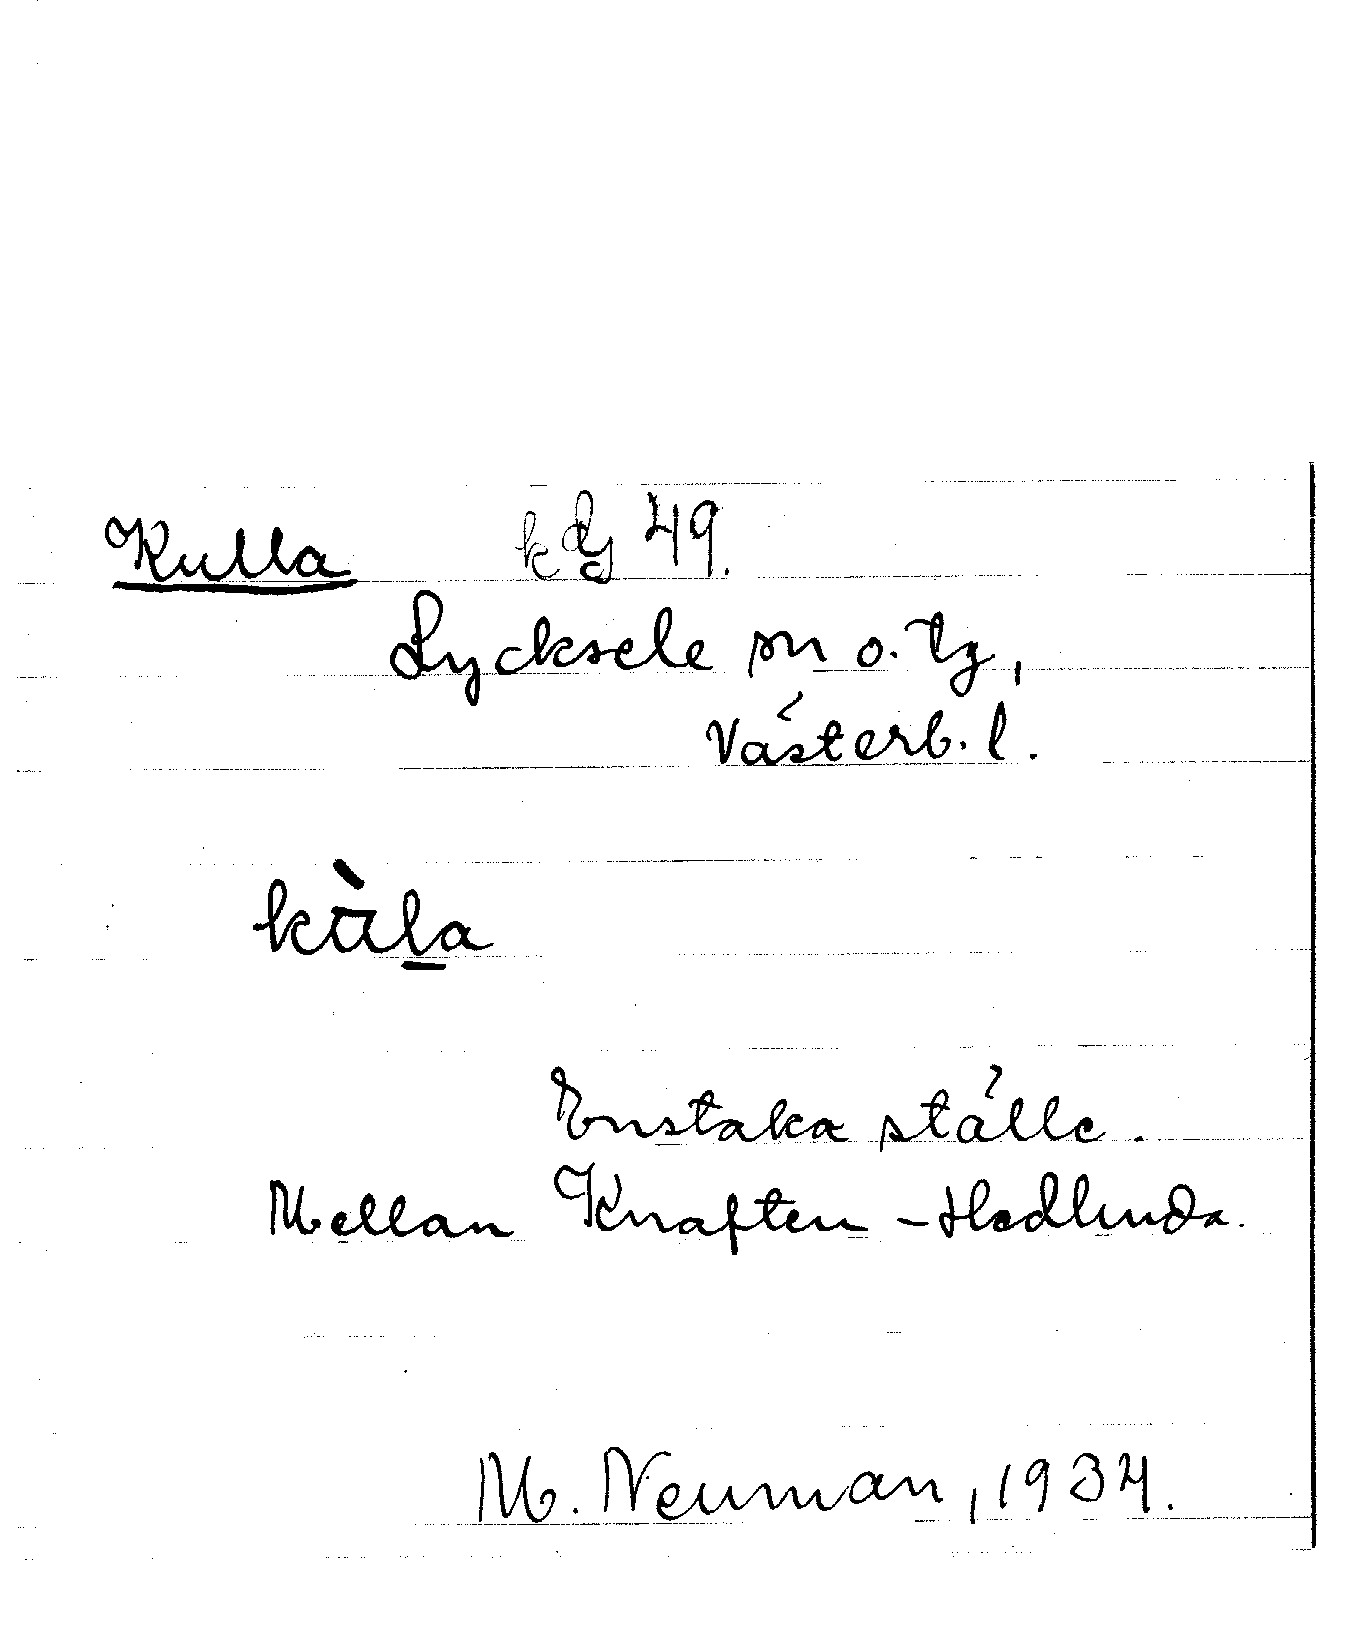 Kulla 49.
Lycksele sn o. tg,
Västerb. l.
kùla
Enstaka ställe.
Mellan Knaften - Hedlunda.
M. Neuman, 1934.